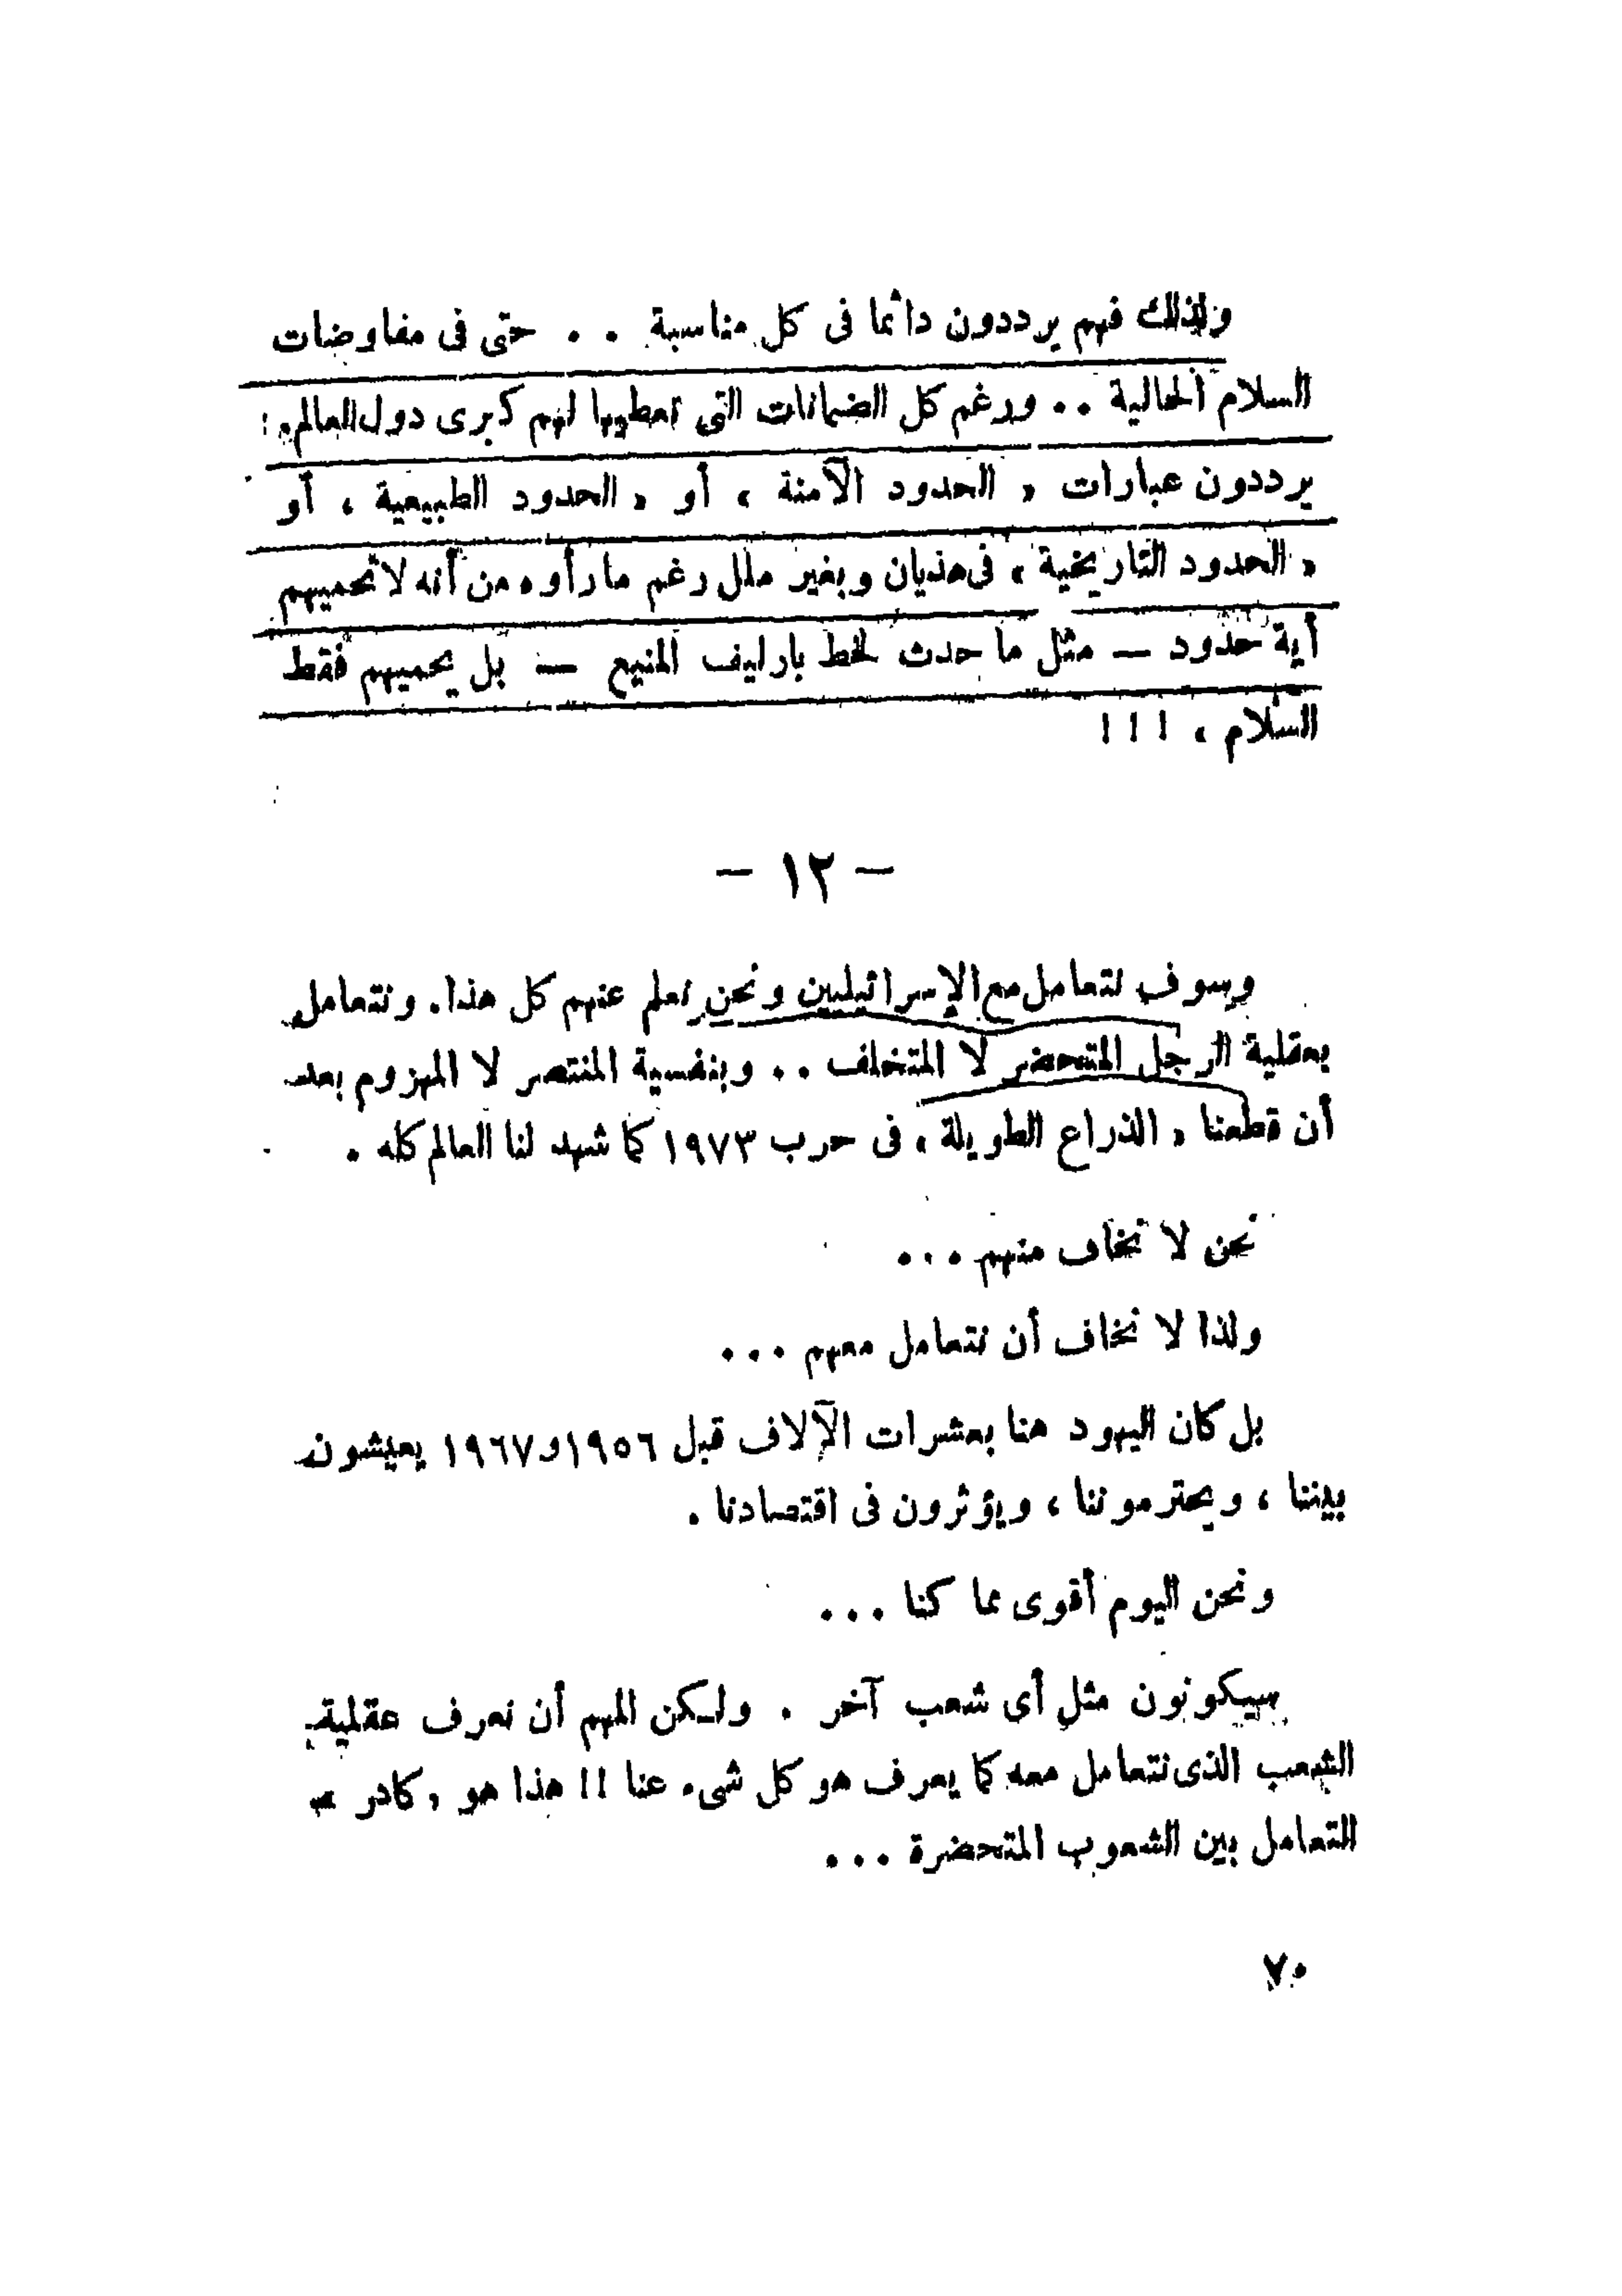 ولذلك فهم يرددون دائما فى كل مناسبة . . حتى فى مفاوضات
السلام الحالية .. ورغم كل الضمانات التى تعطيها لهم كبرى دول العالم :
يرددون عبارات « الحدود الآمنة » أو « الحدود الطبيعية » أو
« الحدود التاريخية » فى هذيان وبغير ملل رغم ما رأوه من أنه لا تحميهم
أية حدود — مثل ما حدث لخط بارليف المنيع — بل يحميهم فقط
السلام » !!!
- ١٢ -
وسوف نتعامل مع الإسرائيليين ونحن نعلم عنهم كل هذا. ونتعامل
بعقلية الرجل المتحضر لا المتخلف .. وبنفسية المنتصر لا المهزوم بعد
أن قطعنا « الذراع الطويلة » فى حرب ١٩٧٣ كما شهد لنا العالم كله .
نحن لا نخاف منهم ...
ولذا لا نخاف أن نتعامل معهم ...
بل كان اليهود هنا بعشرات الآلاف قبل ١٩٥٦ و١٩٦٧ يعيشون
بيننا ، ويحترموننا ، ويؤثرون فى اقتصادنا .
ونحن اليوم أقوى مما كنا ...
سيكونون مثل أى شعب آخر . ولكن المهم أن نعرف عقلية
الشعب الذى نتعامل معه كما يعرف هو كل شىء عنا !! هذا هو « كادر »
التعامل بين الشعوب المتحضرة ...
٧٠